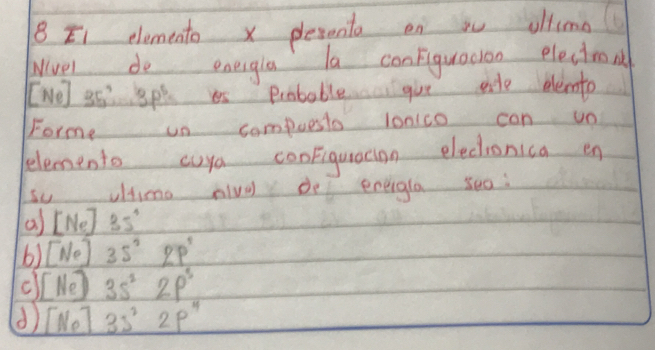 8 El elemento x presenta en su ultimo
Nivel de energia la configuracion electroni
[Ne] 3s² 3p⁵ es probable que este elemnto
Forme un compuesto Ionico con un
elemento cuya configuracion electronica en
su ultimo nivel de energia sea:
a) [Ne] 3s¹
b) [Ne] 3s² 2p¹
c) [Ne] 3s² 2p³
d) [Ne] 3s² 2p⁴